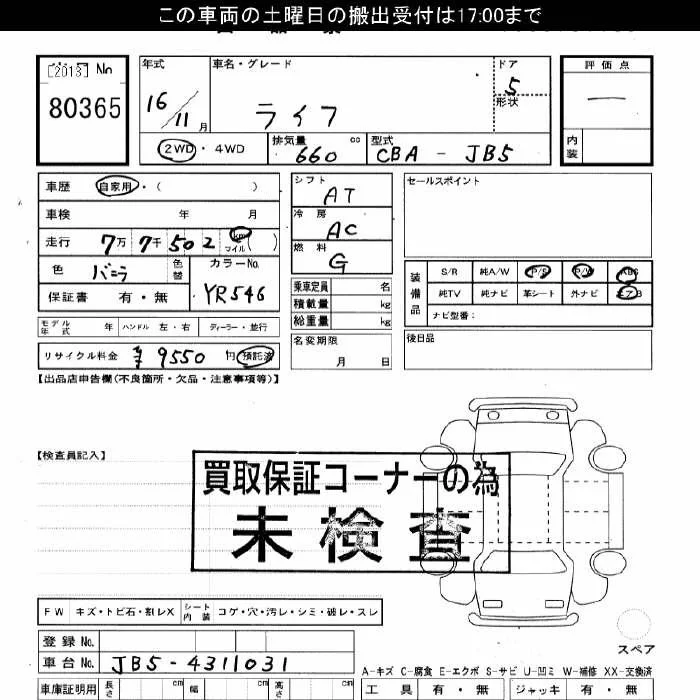 この車両の土曜日の搬出受付は17:00まで
[2013] No
80365
年式
16/11月
車名・グレード
ライフ
ドア
5
形状
評価点
—
内装
2WD・4WD
排気量
660 cc
型式
CBA - JB5
車歴 自家用・( )
車検 年 月
走行 7万 7千 502 km マイル ( )
色 バニラ 色替
カラーNo.
YR546
保証書 有・無
モデル年式 年 ハンドル 左・右 ディーラー・並行
リサイクル料金 ¥9550 円 預託済
シフト
AT
冷房
AC
燃料
G
乗車定員 名
積載量 kg
総重量 kg
名変期限
月 日
セールスポイント
装備品
S/R 純A/W P/S P/W ABS
純TV 純ナビ 革シート 外ナビ エアB
ナビ型番:
後日品
【出品店申告欄(不良箇所・欠品・注意事項等)】
【検査員記入】
買取保証コーナーの為
未検査
FW キズ・トビ石・割レX シート内装 コゲ・穴・汚レ・シミ・破レ・スレ
登録No.
車台No. JB5-4311031
車庫証明用 長さ cm 幅 cm 高さ cm
スペア
A-キズ C-腐食 E-エクボ S-サビ U-凹ミ W-補修 XX-交換済
工具 有・無 ジャッキ 有・無